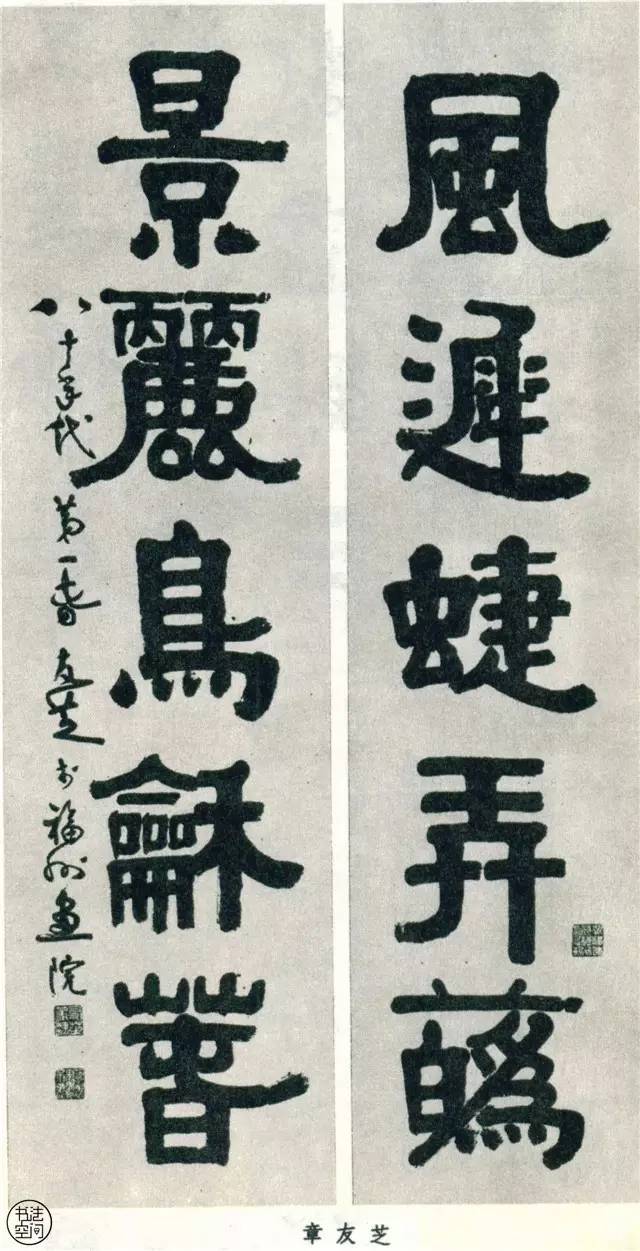 風遲蜨弄蘤
景麗鳥龢萅
八十年代第一春友芝于福州畫院
章友芝
书法
空间